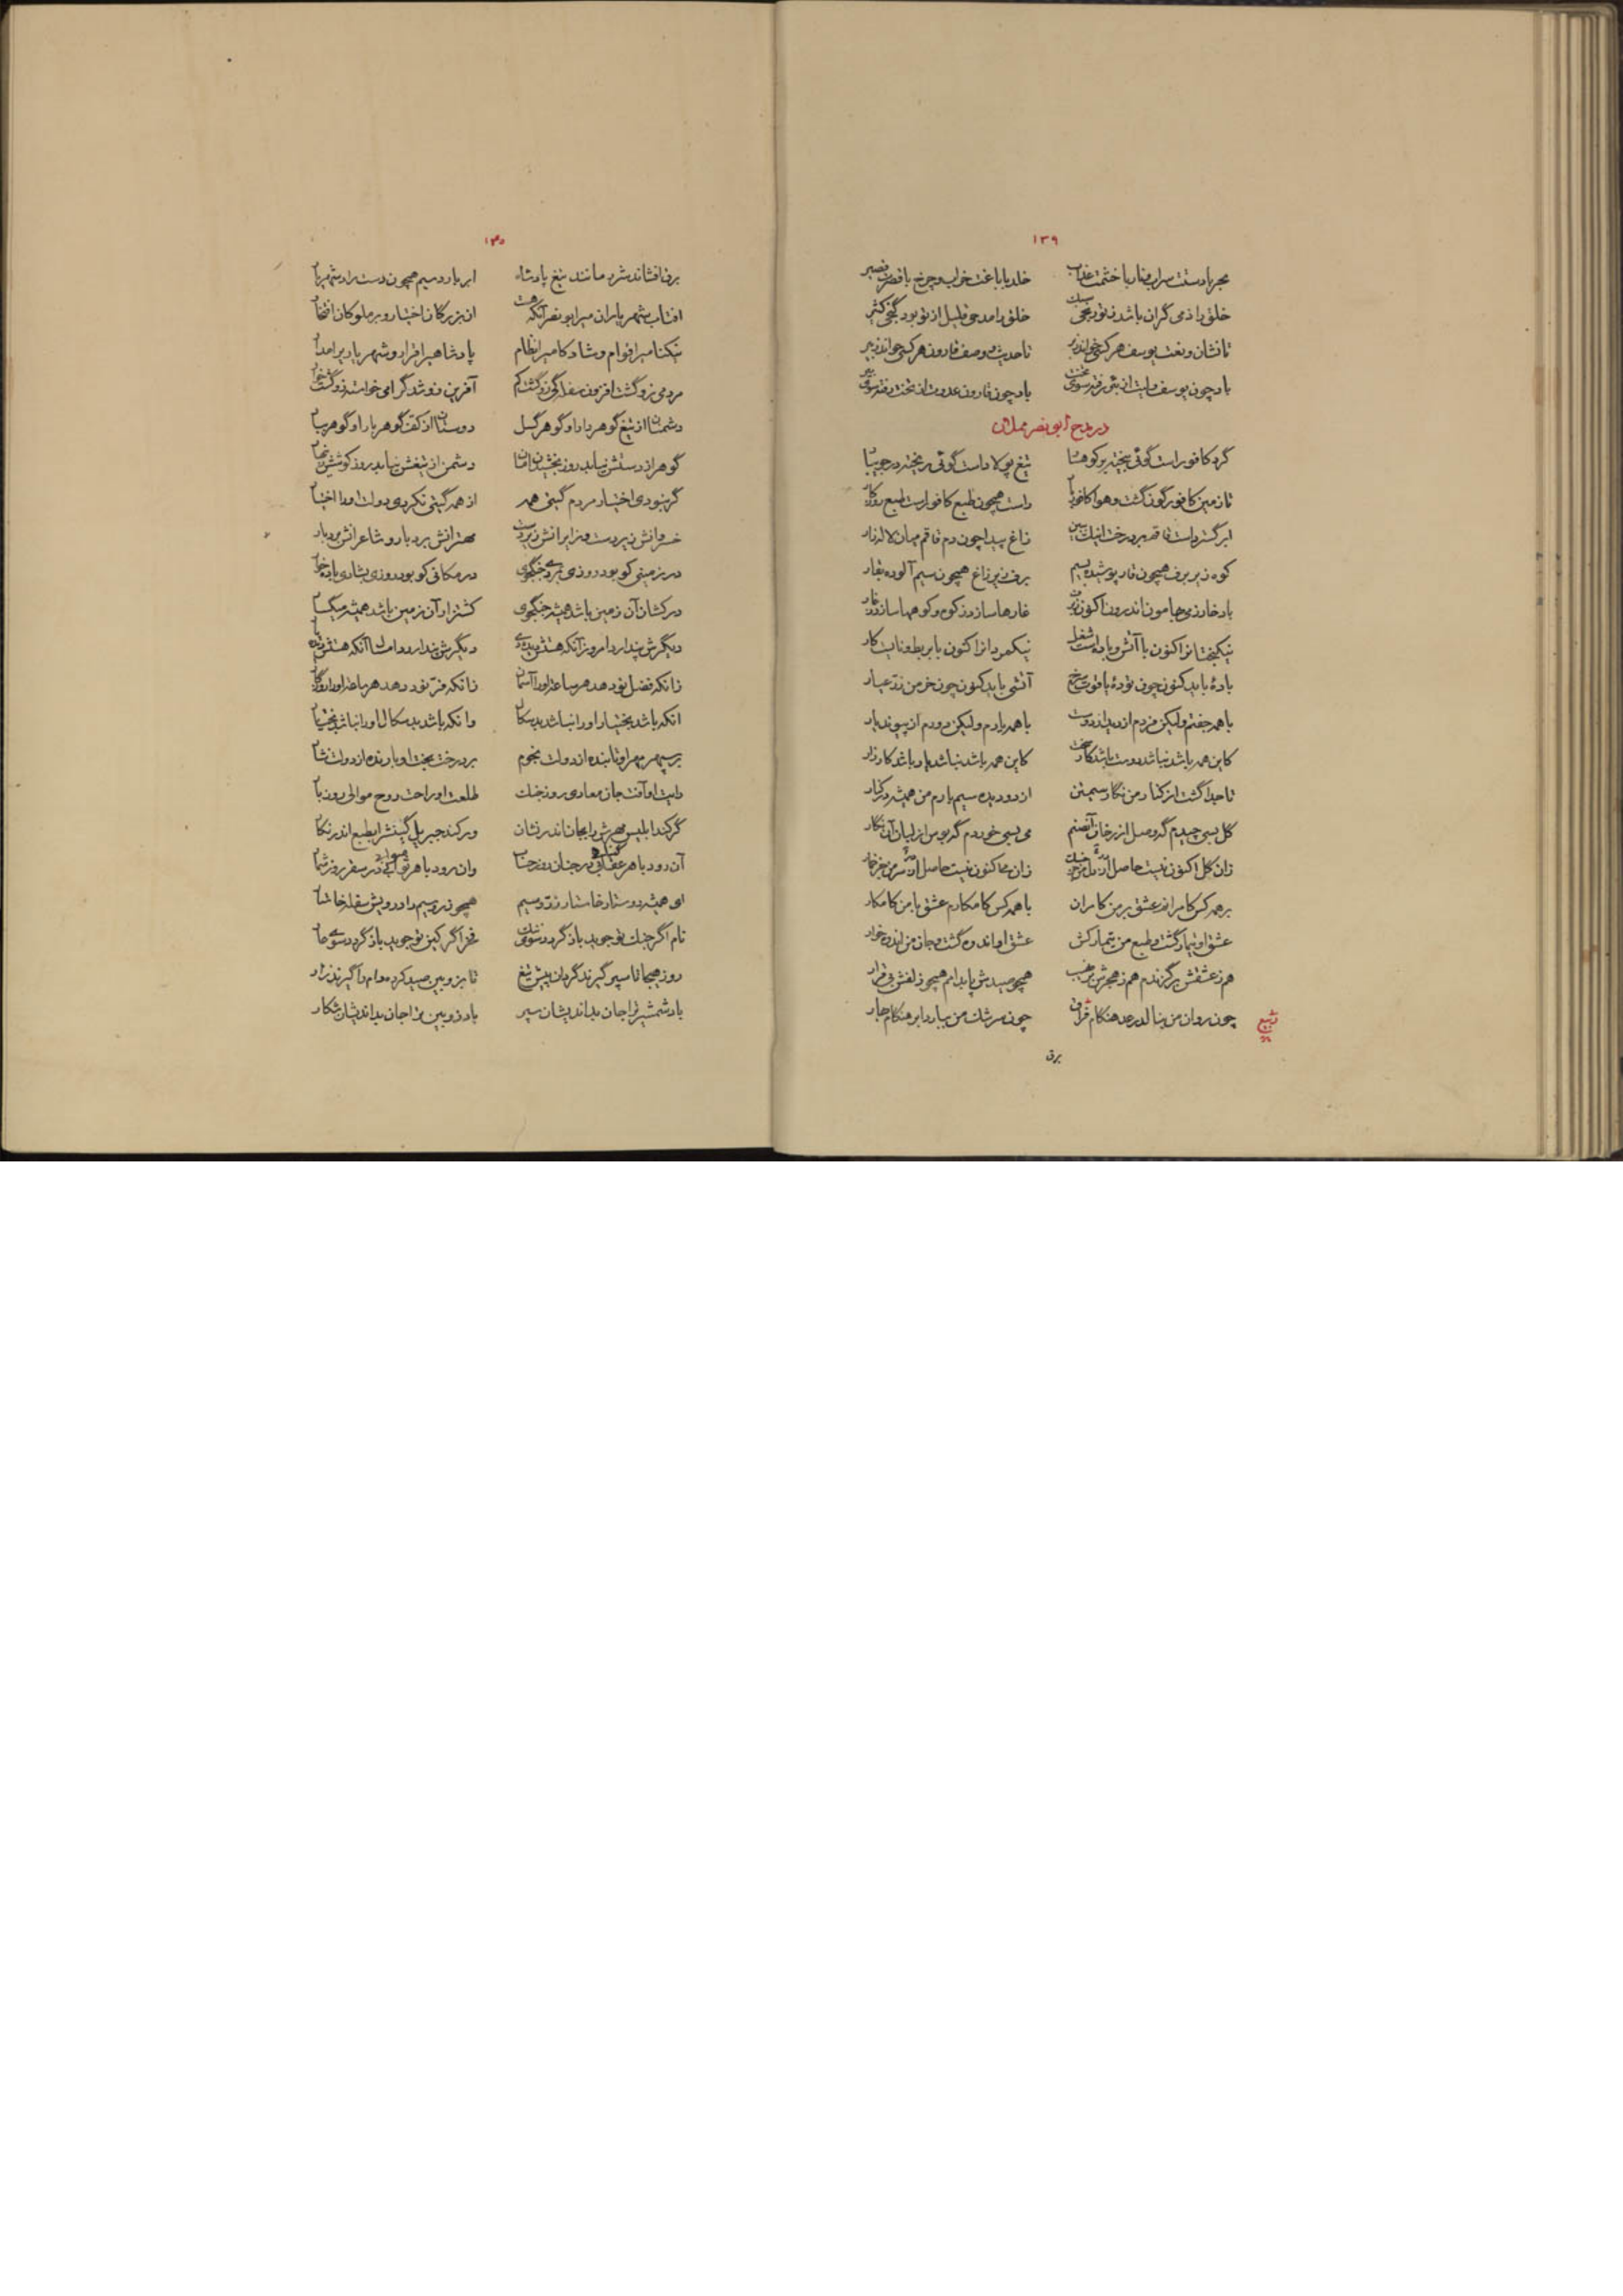 ۱۳۹
بحر با دستت سراب و نار با خشمت عذاب خلد با باغت خراب و چرخ با قصرت قصیر
خلق را ذمی گران باشد ز تو رنجی سبک خلق را مدحی قلیل از تو بود گنجی کثیر
تا نشان و نعت یوسف هر کسی خواند ز بر تا حدیث و وصف قارون هر کسی خواند ز بر
باد چون یوسف ولیت از بئر رفته سوی تخت باد چون قارون عدوت از تخت رفته سوی بئر
در مدح ابونصر مملان
گرد کافور است گوئی بیخته بر کوهسار تیغ پولاد است گوئی ریخته در جویبار
تا زمین کافورگون گشت و هوا کافوربار راست همچون طبع کافور است طبع روزگار
ابر گسترده است قاقم بر درخت اینک ببین زاغ پیدا چون دم قاقم میان لاله‌زار
کوه زیر برف همچون قار پوشیده بسیم برف زیر زاغ همچون سیم آلوده بقار
باد خارزمی بهامون اندرون اکنون ز برف غارها سازد ز کوه و کوهها سازد ز غار
نیکبختانرا کنون با آتش و باده است شغل نیکمردانرا کنون با بربط و نایست کار
بادهٔ باید کنون چون تودهٔ یاقوت سرخ آتشی باید کنون چون خرمن زر عیار
با همه جفتم ولیکن فردم از دیدار دوست با همه یارم ولیکن دورم از پیوند یار
کاین همه باشد نباشد دوست باشد کار سخت کاین همه باشد نباشد یار باشد کار زار
تا جدا گشت از کنار من نگار سیمتن از دو دیده سیم بارم من همیشه در کنار
گل بسی چیدم گه وصل از رخان آن صنم می بسی خوردم گه بوس از لبان آن نگار
زان گل اکنون نیست حاصل در دل من جز خسک زان می اکنون نیست حاصل در سر من جز خمار
بر همه کس کامرانم عشق بر من کامران با همه کس کامکارم عشق با من کامکار
عشق او تیمار گشت و طبع من تیمارکش عشق او اندوه گشت و جان من اندوه‌خوار
هم ز عشقش پرگزندم هم ز هجرش پرنهیب همچو صیدش پابدامم همچو زلفش بی‌قرار
چون روان من بنالد رعد هنگام فراق چون سرشک من ببارد ابر هنگام بهار
برق
۱۴۰
برق افشاند شرر مانند تیغ پادشاه ابر بارد سیم همچون دست راد شهریار
آفتاب شهریاران میر ابونصر آنکه هست از بزرگان اختیار و بر ملوکان افتخار
نیکنامیرا قوام و شادکامیرا نظام پادشاهیرا قرار و شهریاریرا مدار
مردمی زو گشت افزون سفلگی زو گشت کم آفرین زو شد گرامی خواسته زو گشت خوار
دشمنان از تیغ گوهردار او گوهرگسل دوستان از کف گوهربار او گوهرسپار
گوهر از دستش نیابد روز بخشیدن امان دشمن از تیغش نیابد روز کوشش زینهار
گر نبودی اختیار مردم گیتی همه از همه گیتی نکردی دولت او را اختیار
خسروانش زیردست و زایرانش زبردست مهترانش بردبار و شاعرانش بر دبار
در زمینی کو بود روزی بمردی جنگجوی در مکانی کو بود روزی بشادی باده‌خوار
درکشان آن زمین باشد همیشه جنگجوی کشتزار آن زمین باشد همیشه میگسار
دیگرش پندارد امروز آنکه هستش دیده دی دیگرش پندارد امسال آنکه هستش دیده پار
زانکه فضل نو دهد هر ساعتی او را آسمان زانکه فر نو دهد هر ساعتی او را روزگار
آنکه باشد بختیار او را نباشد بدسگال وانکه باشد بدسگال او را نباشد بختیار
بر سپهر مهر او تابنده از دولت نجوم بر درخت بخت او بارنده از دولت نثار
رایت او آفت جان معادی روز جنگ طلعت او راحت روح موالی روز بار
گر کند ابلیس مهرش را بجان اندر نشان ور کند جبریل کینش را بطبع اندر نگار
آن رود با هر گناهی در جنان روز حساب وان رود با هر ثوابی در سقر روز شمار
ای همیشه دوستار خاستار زر و سیم همچو زر و سیم را درویش سفله خاستار
نام اگر جنگ تو جوید باز گردد سوی ننگ فخر اگر کین تو جوید باز گردد سوی عار
روز هیجا تا سپر گیرند گردان پیش تیغ تا بزوبین صید کردن وام را گیرند زار
باد شمشیر ترا جان بداندیشان سپر باد زوبین ترا جان بداندیشان شکار